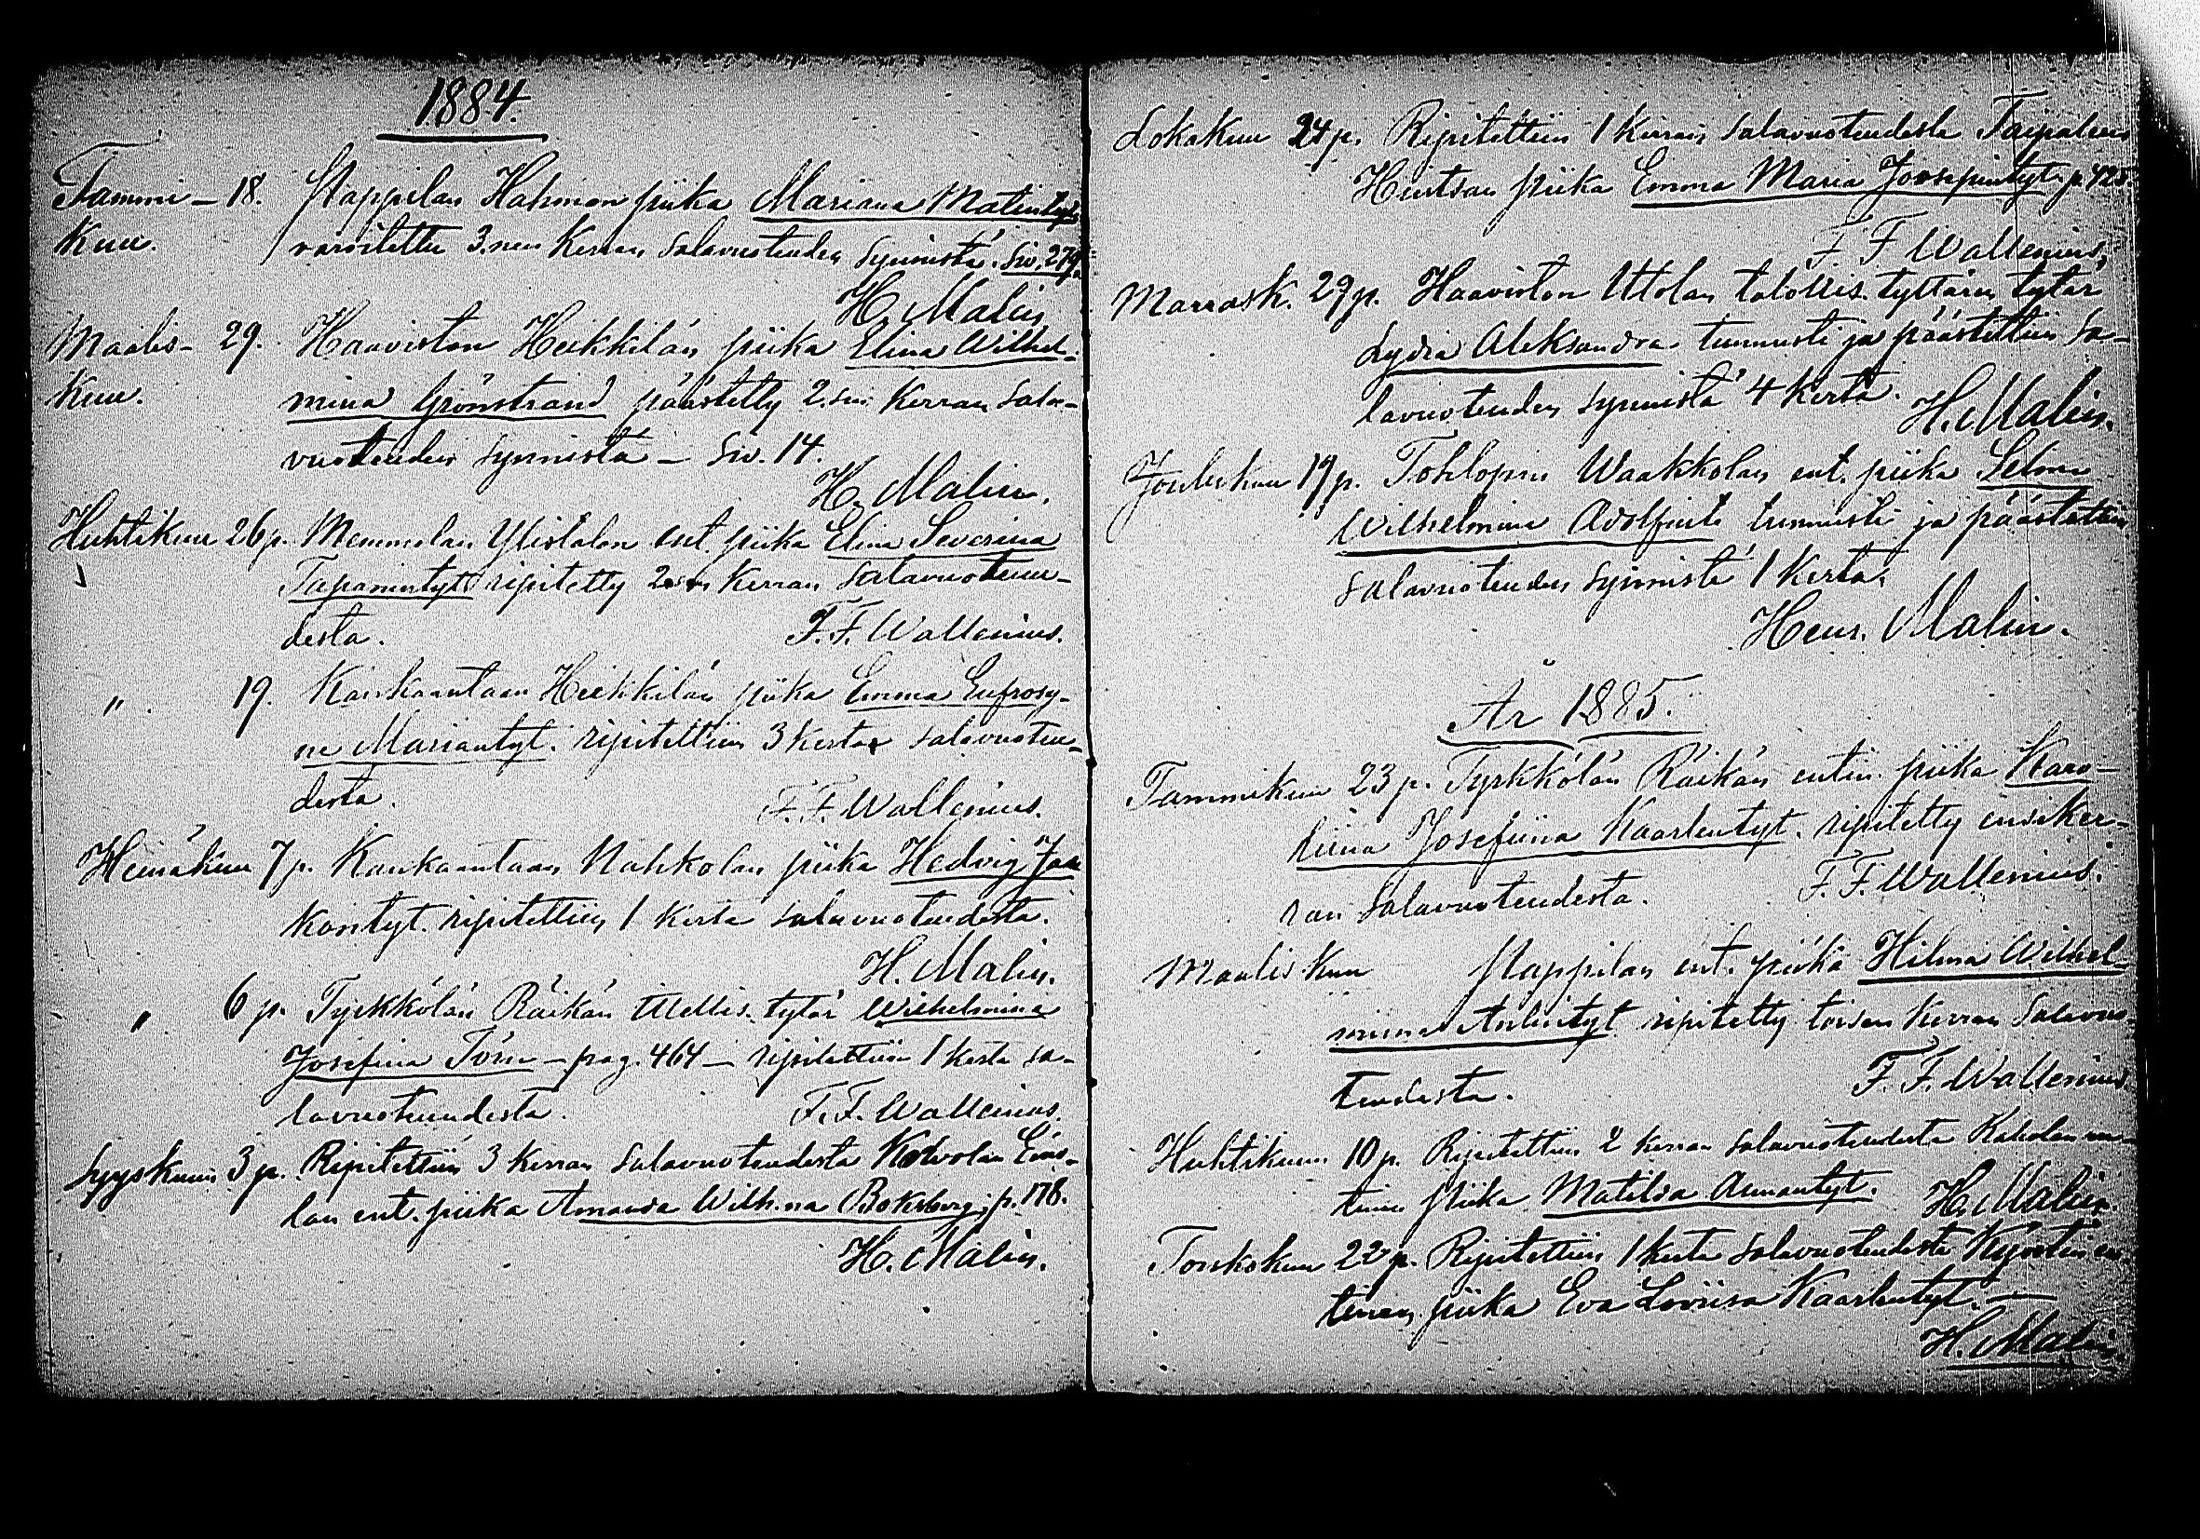 1884.
Tammi- 18. Stappilan Hahmon piika Mariana Matintyt.
kuu. varoitettu 3.nen kerran salavuoteuden synnistä. Siv. 279.
H. Malin
Maalis- 29. Haaviston Heikkilän piika Elina Wilhel-
kuu. mina Grönstrand päästetty 2.sen kerran sala-
vuoteuden synnistä – Siv. 14.
H. Malin.
Huhtikuu 26 p. Memmolan Ylistalon ent. piika Elina Severina
Tapanintytt ripitetty 2.sen kerran salavuoteu-
desta. F. F. Wallenius.
" 19. Kankaantaan Heikkilän piika Emma Eufrosy-
ne Mariantyt. ripitettiin 3 kertaa salavuoteu-
desta. F. F. Wallenius.
Heinäkuu 7 p. Kankaantaan Nahkolan piika Hedvig Jaa
kontyt. ripitettiin 1 kerta salavuoteudesta.
H. Malin.
" 6 p. Tyrkkölän Räikän itellis. tytär Wilhelmina
Josefina Törn – pag. 464 – ripitettiin 1 kerta sa-
lavuoteudesta. F. F. Wallenius.
Syyskuun 3 p. Ripitettiin 3 kerran salavuoteudesta
lan ent. piika Amanda Wilh:na Boksberg, p. 178.
H. Malin.
Lokakuu 24 p. Ripitettiin 1 kerran salavuoteudesta Taipaleen
piika Emma Maria Joosepintyt. p. 425.
F. F. Wallenius.
Marrask. 29 p. Haaviston Uttolan talollis. tyttären tytär
Lydia Aleksandra tunnusti ja päästettiin sa-
lavuoteuden synnistä 4 kerta. H. Malin.
Joulukuu 19 p. Tohlopin Waakkolan ent. piika Selma
Wilhelmina Adolfint. tunnusti ja päästettiin
salavuoteuden synnistä 1 kerta.
Henr. Malin.
År 1885.
Tammikuu 23 p. Tyrkkölän Räikän entin. piika Karo-
liina Josefiina Kaarlentyt. ripitetty ensiker-
ran salavuoteudesta. F. F. Wallenius.
Maaliskuu Stappilan ent. piika Hilma Wilhel-
miina Antintyt ripitetty toisen kerran salavuo-
teudesta. F. F. Wallenius.
Huhtikuun 10 p. Ripitettiin 2 kerran salavuoteudesta Kaholan en-
tinen piika Matilda Amantyt. H. Malin.
Toukokuu 22 p. Ripitettiin 1 kerta salavuoteudesta en-
tinen piika Eva Loviisa Kaarlentyt. –
H. Malin